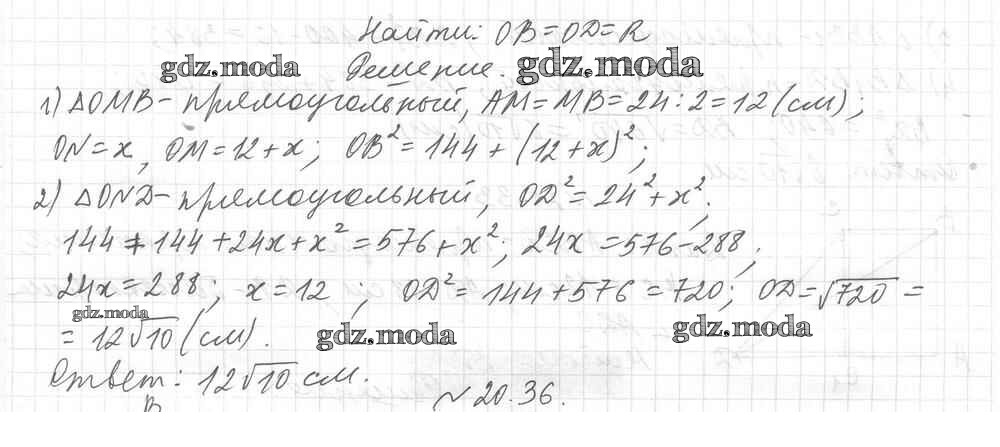 Найти: OB=OD=R
gdz.moda Решение. gdz.moda
1) △OMB- прямоугольный, AM=MB=24:2=12(см);
ON=x, OM=12+x; OB²=144+(12+x)²;
2) △OND- прямоугольный, OD²=24²+x²;
144+144+24x+x²=576+x²; 24x=576-288;
24x=288; x=12; OD²=144+576=720; OD=√720=
gdz.moda
=12√10(см). gdz.moda gdz.moda
Ответ: 12√10 см.
B №20.36.